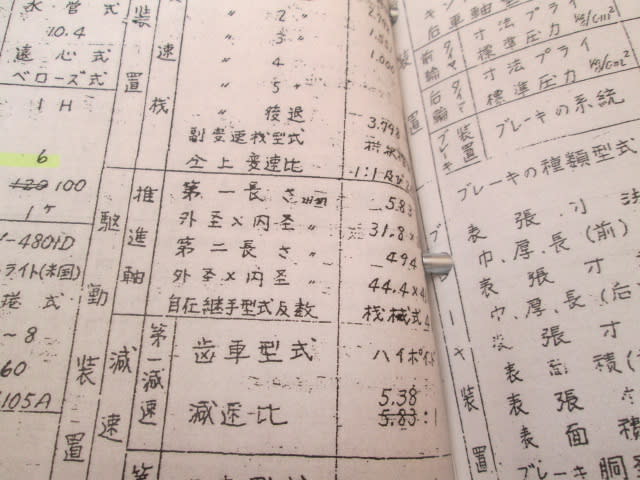 水・管式
10.4
遠心式
ベローズ式
1H
6
120 100
1ヶ
-480HD
ライト(米国)
式
~8
60
105A
装置
速桟
駆動装置
推進軸
減速
第一減速
" 2 "
" 3 "
" 4 "
" 5 "
" 後退
3.798
副変速桟型式
仝上変速比
1:1及び
第一長さ
583
外圣×内圣 "
31.8×
第二長さ "
494
外圣×内圣 "
44.4×4
自在継手型式及数
桟械式
歯車型式
ハイポイド
減速比
5.38
5.83:1
置
后車軸型
前輪タイヤ
寸法プライ
標準圧力 kg/cm²
后輪タイヤ
寸法プライ
標準圧力 kg/cm²
ブレーキ装置
ブレーキの系統
ブレーキの種類型式
表張寸法
巾、厚、長(前)
表張寸
巾、厚、長(后
張寸
表面積(
表張
表面積
ブレーキ胴圣
キ装置